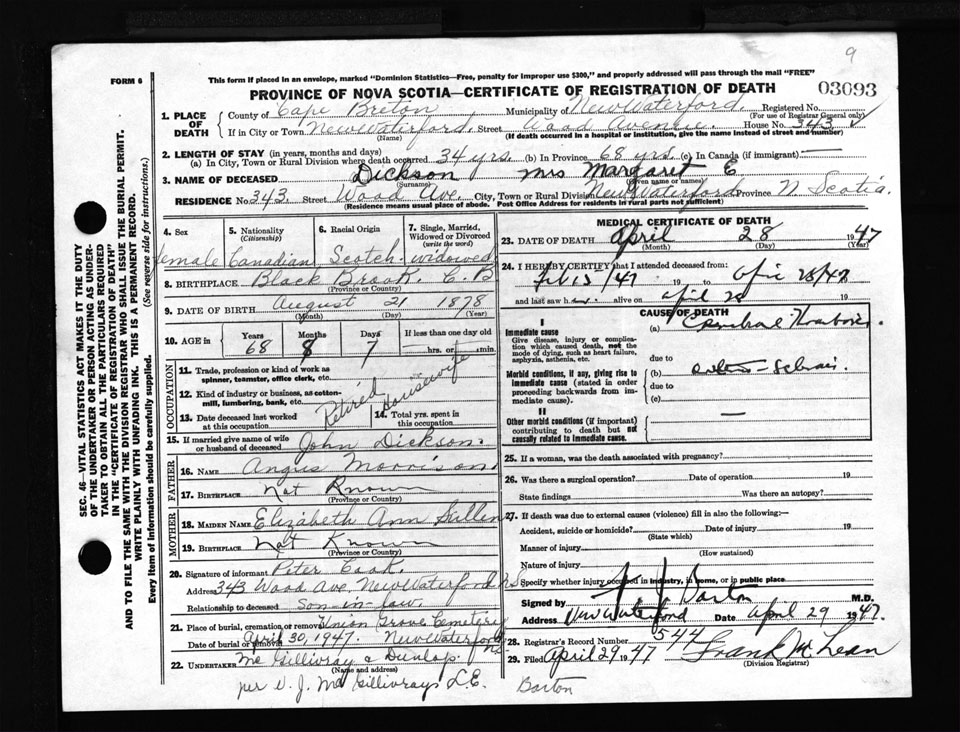 9
This form if placed in an envelope, marked "Dominion Statistics—Free, penalty for improper use $300," and properly addressed will pass through the mail "FREE"
FORM 6
PROVINCE OF NOVA SCOTIA—CERTIFICATE OF REGISTRATION OF DEATH
03093
1. PLACE OF DEATH
County of Cape Breton Municipality of New Waterford. Registered No.
(For use of Registrar General only)
If in City or Town New Waterford. Street Wood Avenue. House No. 343
(Name) (If death occurred in a hospital or institution, give the name instead of street and number)
2. LENGTH OF STAY (in years, months and days)
(a) In City, Town or Rural Division where death occurred 34 yrs. (b) In Province 68 yrs. (c) In Canada (if immigrant) —
3. NAME OF DECEASED Dickson Mrs Margaret E
(Surname) (Given name or names)
RESIDENCE No. 343. Street Wood Ave. City, Town or Rural Division New Waterford Province N Scotia.
(Residence means usual place of abode. Post Office Address for residents in rural parts not sufficient)
4. Sex
5. Nationality (Citizenship)
6. Racial Origin
7. Single, Married, Widowed or Divorced (write the word)
female Canadian Scotch widowed
8. BIRTHPLACE Black Brook, C. B
(Province or Country)
9. DATE OF BIRTH August 21 1878
(Month) (Day) (Year)
10. AGE in Years Months Days If less than one day old
68 8 7 hrs. or min.
OCCUPATION
11. Trade, profession or kind of work as spinner, teamster, office clerk, etc.
12. Kind of industry or business, as cotton-mill, lumbering, bank, etc.
Retired Housewife
13. Date deceased last worked at this occupation
14. Total yrs. spent in this occupation
15. If married give name of wife or husband of deceased John Dickson.
FATHER
16. NAME Angus Morrison
17. BIRTHPLACE Not Known
(Province or Country)
MOTHER
18. MAIDEN NAME Elizabeth Ann
19. BIRTHPLACE Not Known
(Province or Country)
20. Signature of informant Peter Cook
Address 343 Wood Ave, New Waterford NS
Relationship to deceased Son-in-law.
21. Place of burial, cremation or removal Union Grove Cemetery
Date of burial or removal April 30, 1947. New Waterford NS
22. UNDERTAKER McGillivray & Dunlap.
(Name and address)
per J. McGillivrays L.E.
MEDICAL CERTIFICATE OF DEATH
23. DATE OF DEATH April 28 1947
(Month) (Day) (Year)
24. I HEREBY CERTIFY that I attended deceased from:
/47 19 to 28/47
and last saw h alive on april 28 19
CAUSE OF DEATH
I
Immediate cause
Give disease, injury or complication which caused death, not the mode of dying, such as heart failure, asphyxia, asthenia, etc.
(a) Cerebral Thrombosis.
due to
Morbid conditions, if any, giving rise to immediate cause (stated in order proceeding backwards from immediate cause).
(b)
due to
(c)
II
Other morbid conditions (if important) contributing to death but not causally related to immediate cause.
—
25. If a woman, was the death associated with pregnancy?
26. Was there a surgical operation? Date of operation 19
State findings Was there an autopsy?
27. If death was due to external causes (violence) fill in also the following:—
Accident, suicide or homicide? Date of injury 19
(State which)
Manner of injury
(How sustained)
Nature of injury
Specify whether injury occurred in industry, in home, or in public place
Signed by J Barton M.D.
Address New Waterford Date April 29 1947.
28. Registrar's Record Number 544
29. Filed April 29 1947 Frank McLean
(Division Registrar)
Barton
SEC. 46—VITAL STATISTICS ACT MAKES IT THE DUTY
OF THE UNDERTAKER OR PERSON ACTING AS UNDER-
TAKER TO OBTAIN ALL THE PARTICULARS REQUIRED
IN THE "CERTIFICATE OF REGISTRATION OF DEATH"
AND TO FILE THE SAME WITH THE DIVISION REGISTRAR WHO SHALL ISSUE THE BURIAL PERMIT.
WRITE PLAINLY WITH UNFADING INK. THIS IS A PERMANENT RECORD.
Every item of information should be carefully supplied. (See reverse side for instructions.)